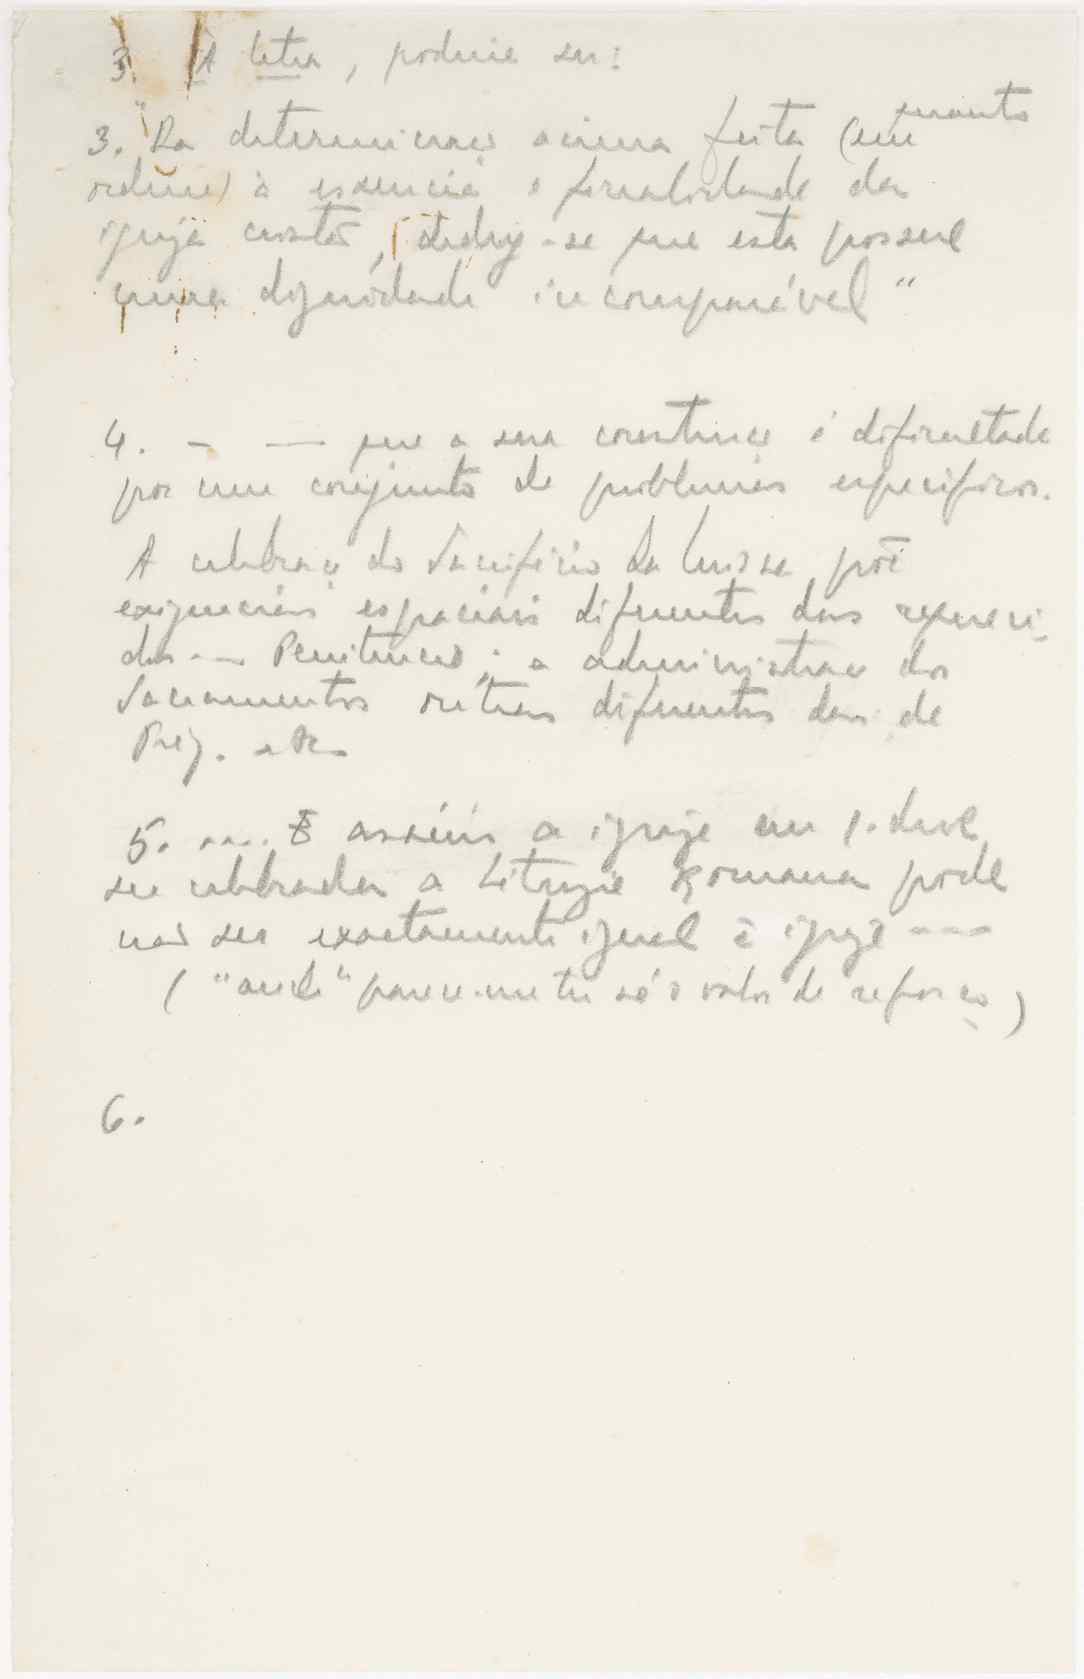 3. À letra, poderia ser:
3. "Da determinação acima feita (em quanto
ordem) à essência e finalidade da
igreja cristã, deduz-se que esta possue
uma dignidade incomparável"
4. - — que a sua construção é dificultada
por um conjunto de problemas especificos.
A celebração do Sacrifício da Missa põe
exigencias espaciais diferentes das requeri-
das — Penitencia; a administração dos
Sacramentos outras diferentes das de
Preg. etc
5. .... E assim a igreja em q. deve
ser celebrada a Liturgia Romana pode
não ser exactamente igual à igreja ---
( "auch" parece-me ter só o valor de reforço )
6.